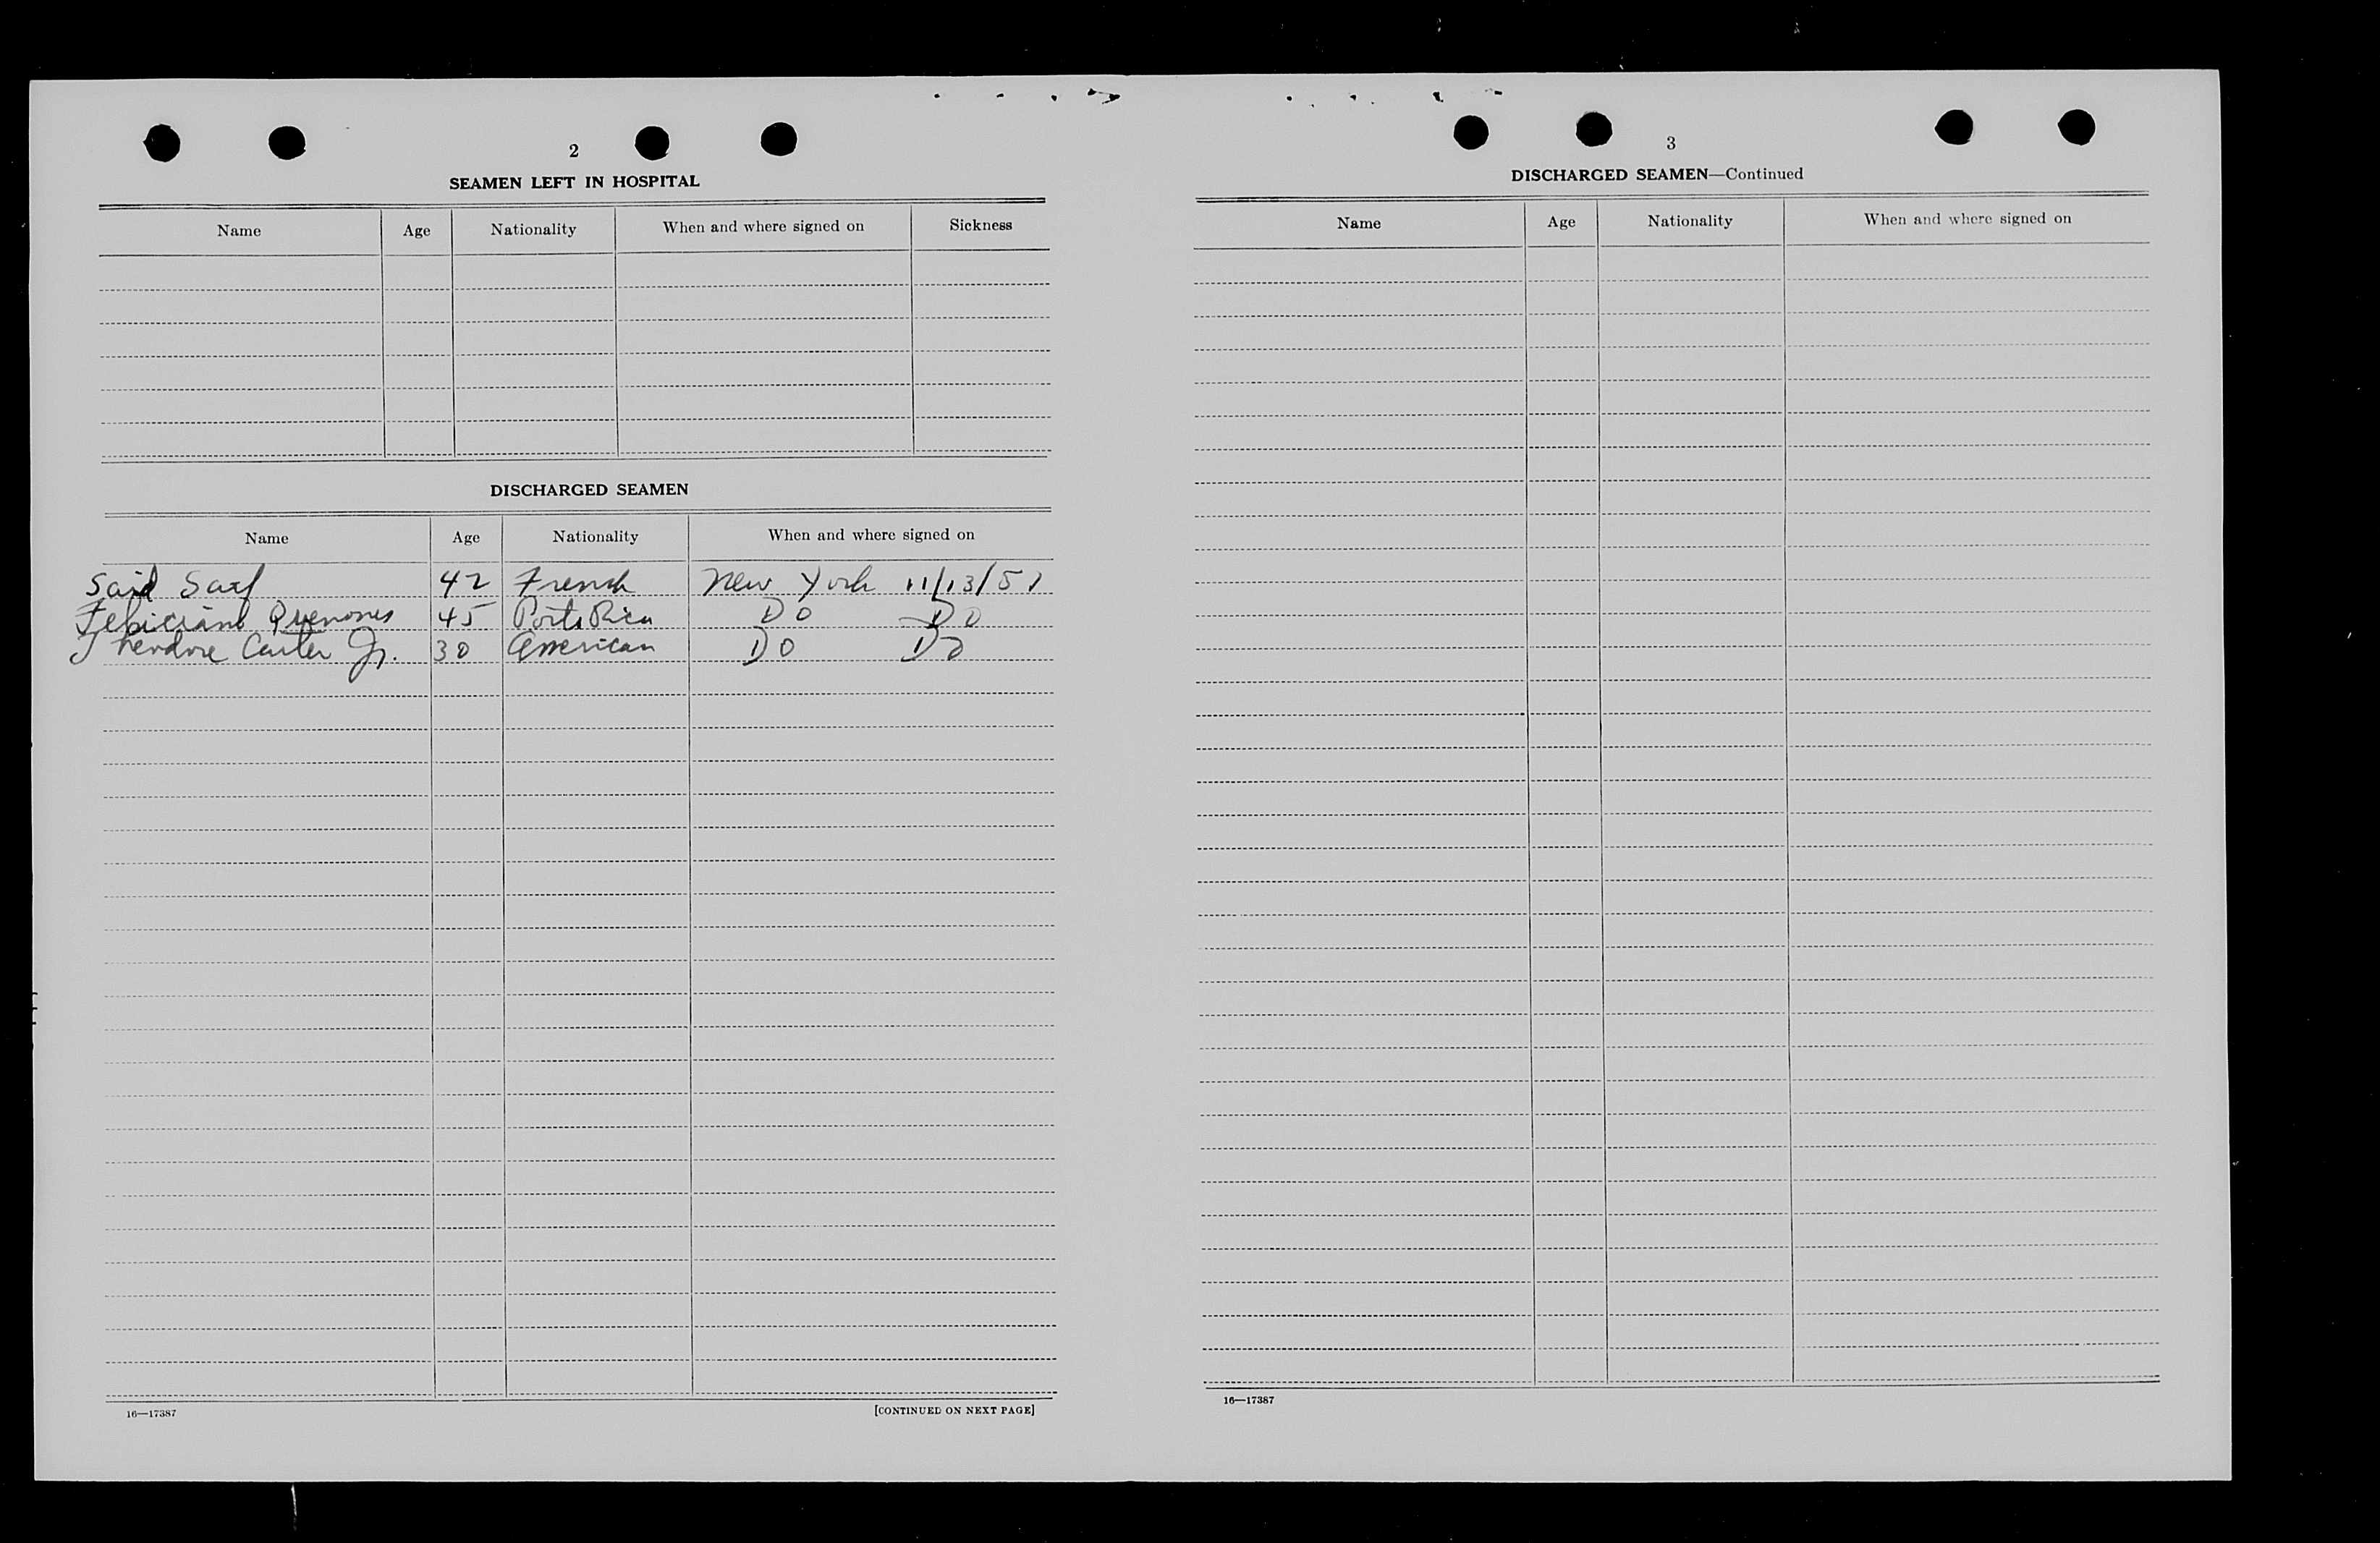 2
SEAMEN LEFT IN HOSPITAL
Name Age Nationality When and where signed on Sickness
DISCHARGED SEAMEN
Name Age Nationality When and where signed on
Said 42 French New York 11/13/51
Quenones 45 Porto Rico DO DO
Theodore Carter Jr. 30 American DO DO
16—17387 [CONTINUED ON NEXT PAGE]
3
DISCHARGED SEAMEN—Continued
Name Age Nationality When and where signed on
16—17387